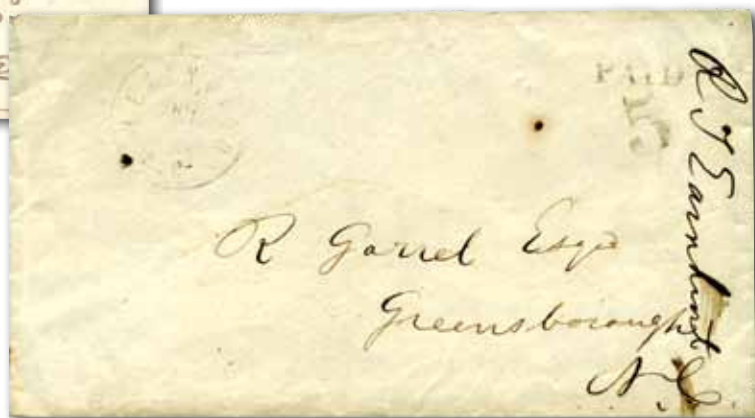 PAID
5
R Garrel Esqr
Greensborough
N.C.
R J Earnhardt